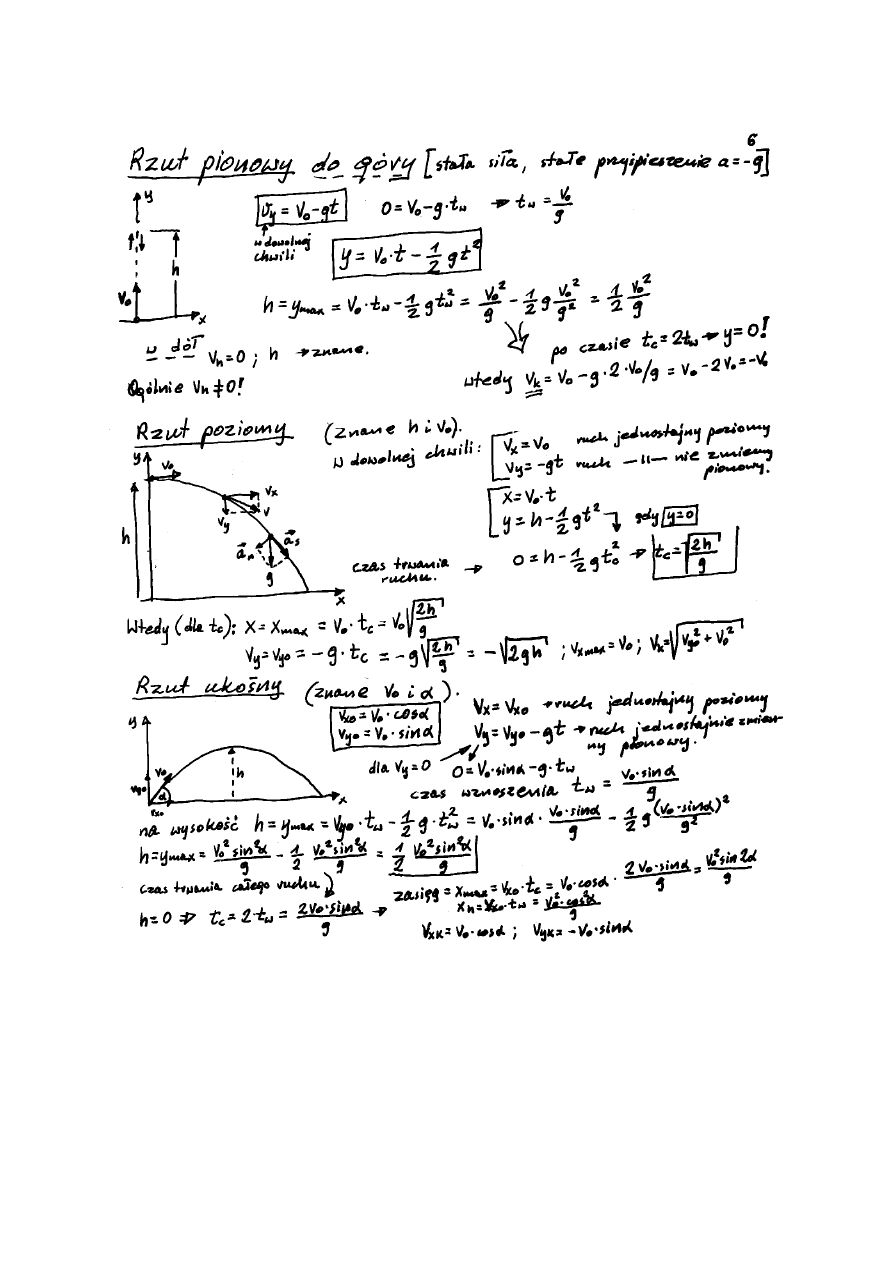 6
Rzut pionowy do góry [stała siła, stałe przyśpieszenie a = -g]
y
Vy = V₀ - gt    0 = V₀ - g·tw → tw = V₀/g
w dowolnej
chwili
y = V₀·t - 1/2 gt²
h
V₀
x
h = ymax = V₀·tw - 1/2 gtw² = V₀²/g - 1/2 g V₀²/g² = 1/2 V₀²/g
po czasie tc = 2tw → y = 0!
w dół Vh = 0 ; h → znane.
wtedy Vk = V₀ - g·2·V₀/g = V₀ - 2V₀ = -V₀
Ogólnie Vh ≠ 0!
Rzut poziomy (znane h i V₀).
w dowolnej chwili: Vx = V₀ ruch jednostajny poziomy
Vy = -gt ruch —ıı— nie zmienny
pionowy.
y V₀
Vx
V
Vy
x = V₀·t
y = h - 1/2 gt² gdy y = 0
h
an as
g
x
czas trwania
ruchu. → 0 = h - 1/2 gt₀² → tc = √(2h/g)
Wtedy (dla tc): x = xmax = V₀·tc = V₀√(2h/g)
Vy = Vy₀ = -g·tc = -g√(2h/g) = -√(2gh) ; Vxmax = V₀ ; Vk = √(Vy₀² + V₀²)
Rzut ukośny (znane V₀ i α).
Vx₀ = V₀·cosα
Vy₀ = V₀·sinα
Vx = Vx₀ → ruch jednostajny poziomy
Vy = Vy₀ - gt → ruch jednostajnie zmien-
ny pionowy.
y
V₀
Vy₀
α
Vx₀
h
x
dla Vy = 0 0 = V₀·sinα - g·tw
czas wznoszenia tw = V₀·sinα/g
na wysokość h = ymax = Vy₀·tw - 1/2 g·tw² = V₀·sinα · V₀·sinα/g - 1/2 g (V₀·sinα)²/g²
h = ymax = V₀²sin²α/g - 1/2 V₀²sin²α/g = 1/2 V₀²sin²α/g
czas trwania całego ruchu
h = 0 ⇒ tc = 2·tw = 2V₀·sinα/g → zasięg = xmax = Vx₀·tc = V₀·cosα · 2V₀·sinα/g = V₀²sin2α/g
Vxk = V₀·cosα ; Vyk = -V₀·sinα